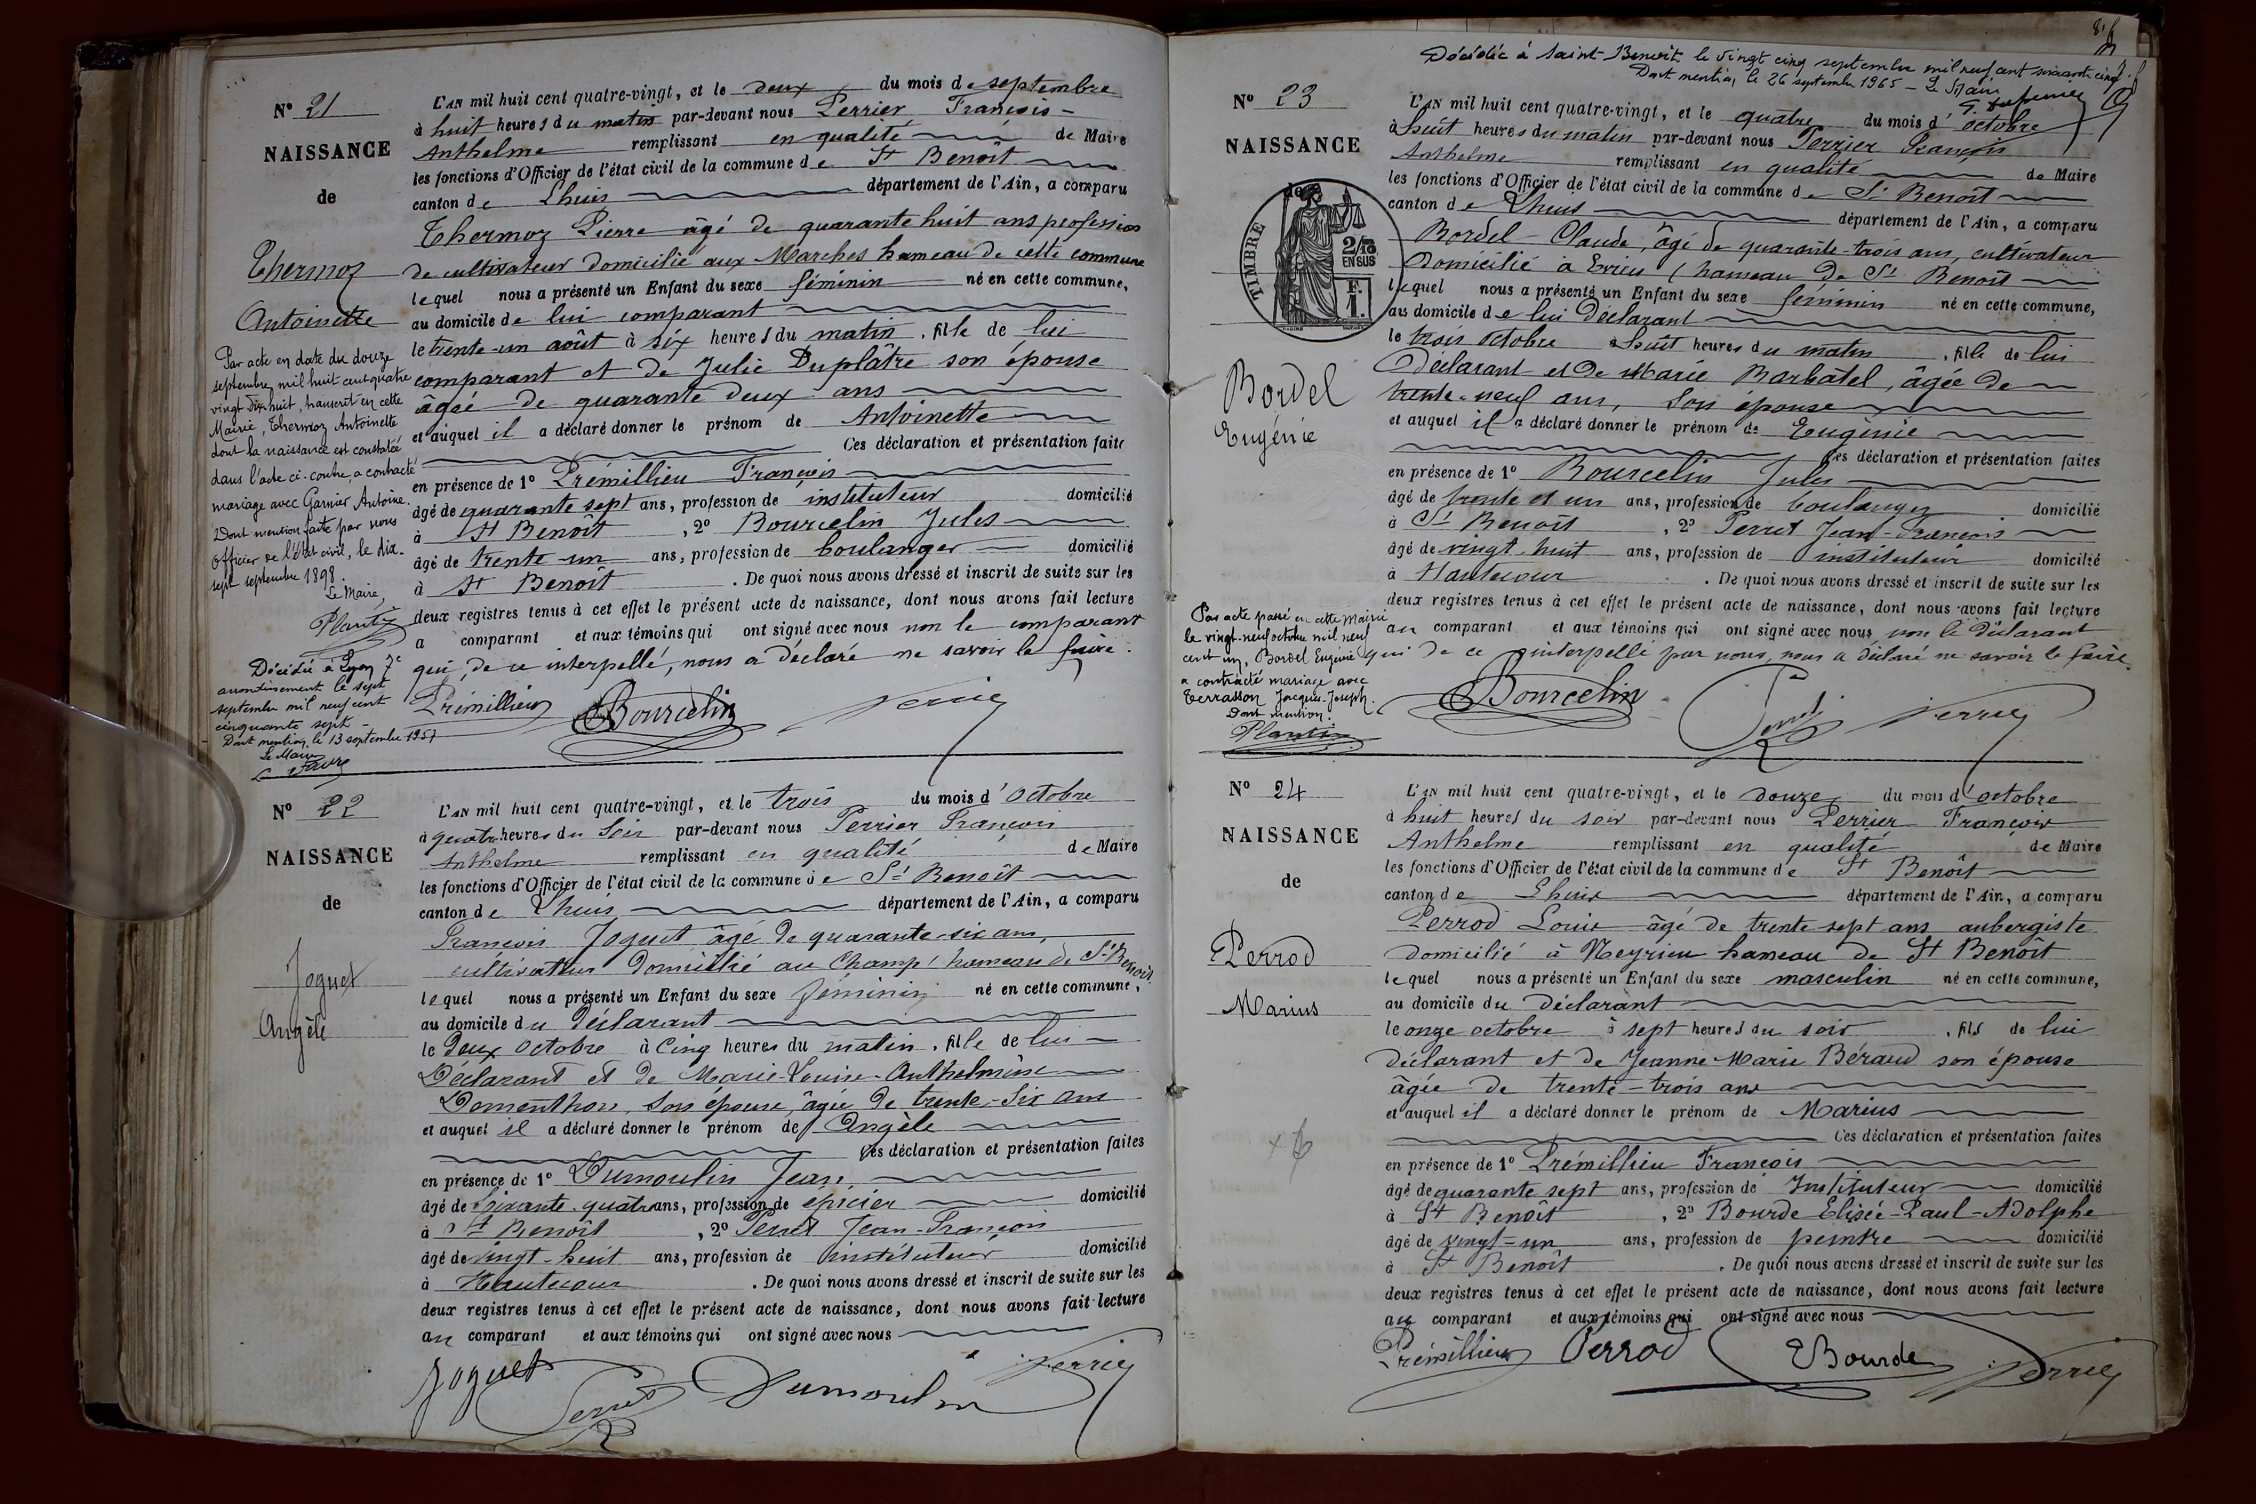 Nº 21
NAISSANCE
de
Thermoz
Antoinette
Par acte en date du douze
septembre mil huit cent quatre
vingt dix huit, transcrit en cette
Mairie, Thermoz Antoinette
dont la naissance est constatée
dans l'acte ci-contre, a contracté
mariage avec Garnier Antoine.
Dont mention faite par nous
officier de l'état civil, le dix-
sept septembre 1898.
Le Maire,
Plantin
Décédée à Lyon 7e
arrondissement le sept
septembre mil neuf cent
cinquante sept -
Dont mention, le 13 septembre 1957
Le Maire
L'AN mil huit cent quatre-vingt, et le deux du mois de septembre
à huit heures du matin par-devant nous Perrier François-
Anthelme remplissant en qualité de Maire
les fonctions d'Officier de l'état civil de la commune de St Benoît
canton de Lhuis département de l'Ain, a comparu
Thermoz Pierre âgé de quarante huit ans profession
de cultivateur domicilié aux Marches hameau de cette commune
lequel nous a présenté un Enfant du sexe féminin né en cette commune,
au domicile de lui comparant
le trente-un août à six heures du matin, fille de lui
comparant et de Julie Duplâtre son épouse
âgée de quarante deux ans
et auquel il a déclaré donner le prénom de Antoinette
Ces déclaration et présentation faites
en présence de 1º Prémillieu François
âgé de quarante sept ans, profession de instituteur domicilié
à St Benoît, 2º Bourcelin Jules
âgé de trente-un ans, profession de boulanger domicilié
à St Benoît. De quoi nous avons dressé et inscrit de suite sur les
deux registres tenus à cet effet le présent acte de naissance, dont nous avons fait lecture
a comparant et aux témoins qui ont signé avec nous non le comparant
qui, de ce interpellé, nous a déclaré ne savoir le faire.
Prémillieu Bourcelin Perrier
Nº 22
NAISSANCE
de
Joguet
Angèle
L'AN mil huit cent quatre-vingt, et le trois du mois d'octobre
à quatre heures du soir par-devant nous Perrier François
Anthelme remplissant en qualité de Maire
les fonctions d'Officier de l'état civil de la commune de St Benoît
canton de Lhuis département de l'Ain, a comparu
François Joguet âgé de quarante-six ans,
cultivateur domicilié au Champ, hameau de St Benoît
lequel nous a présenté un Enfant du sexe féminin né en cette commune,
au domicile du déclarant
le deux octobre à cinq heures du matin, fille de lui
Déclarant et de Marie-Louise-Anthelmine
Domenthon, son épouse, âgée de trente-six ans
et auquel il a déclaré donner le prénom de Angèle
Ces déclaration et présentation faites
en présence de 1º Dumoulin Jean,
âgé de soixante-quatre ans, profession de épicier domicilié
à St Benoît, 2º Perret Jean-François
âgé de vingt-huit ans, profession de instituteur domicilié
à Hautecour. De quoi nous avons dressé et inscrit de suite sur les
deux registres tenus à cet effet le présent acte de naissance, dont nous avons fait lecture
au comparant et aux témoins qui ont signé avec nous
Joguet Perret Dumoulin Perrier
Décédée à Saint-Benoît le vingt cinq septembre mil neuf cent soixante cinq
Dont mention, le 26 septembre 1965 - Le Maire
Nº 23
NAISSANCE
de
TIMBRE
2/10 EN SUS
F. 1.
Bordel
Eugénie
Par acte passé en cette Mairie
le vingt-neuf octobre mil neuf
cent un, Bordel Eugénie
a contracté mariage avec
Terrasson Jacques-Joseph.
Dont mention.
Plantin
L'AN mil huit cent quatre-vingt, et le quatre du mois d'octobre
à huit heures du matin par-devant nous Perrier François
Anthelme remplissant en qualité de Maire
les fonctions d'Officier de l'état civil de la commune de St Benoît
canton de Lhuis département de l'Ain, a comparu
Bordel Claude, âgé de quarante-trois ans, cultivateur
domicilié à Evieu (hameau de St Benoît
lequel nous a présenté un Enfant du sexe féminin né en cette commune,
au domicile de lui déclarant
le trois octobre à huit heures du matin, fille de lui
Déclarant et de Marie Barbâtel, âgée de
trente-neuf ans, son épouse
et auquel il a déclaré donner le prénom de Eugénie
Ces déclaration et présentation faites
en présence de 1º Bourcelin Jules
âgé de trente et un ans, profession de boulanger domicilié
à St Benoît, 2º Perret Jean-François
âgé de vingt-huit ans, profession de instituteur domicilié
à Hautecour. De quoi nous avons dressé et inscrit de suite sur les
deux registres tenus à cet effet le présent acte de naissance, dont nous avons fait lecture
au comparant et aux témoins qui ont signé avec nous non le déclarant
qui de ce interpellé par nous, nous a déclaré ne savoir le faire.
Bourcelin Perret Perrier
Nº 24
NAISSANCE
de
Perrod
Marius
L'AN mil huit cent quatre-vingt, et le douze du mois d'octobre
à huit heures du soir par-devant nous Perrier François
Anthelme remplissant en qualité de Maire
les fonctions d'Officier de l'état civil de la commune de St Benoît
canton de Lhuis département de l'Ain, a comparu
Perrod Louis âgé de trente-sept ans aubergiste
domicilié à Meyrieu hameau de St Benoît
lequel nous a présenté un Enfant du sexe masculin né en cette commune,
au domicile du déclarant
le onze octobre à sept heures du soir, fils de lui
déclarant et de Jeanne-Marie Béraud son épouse
âgée de trente-trois ans
et auquel il a déclaré donner le prénom de Marius
Ces déclaration et présentation faites
en présence de 1º Prémillieu François
âgé de quarante sept ans, profession de Instituteur domicilié
à St Benoît, 2º Bourde Elisée-Paul-Adolphe
âgé de vingt-un ans, profession de peintre domicilié
à St Benoît. De quoi nous avons dressé et inscrit de suite sur les
deux registres tenus à cet effet le présent acte de naissance, dont nous avons fait lecture
au comparant et aux témoins qui ont signé avec nous
Prémillieu Perrod EBourde Perrier